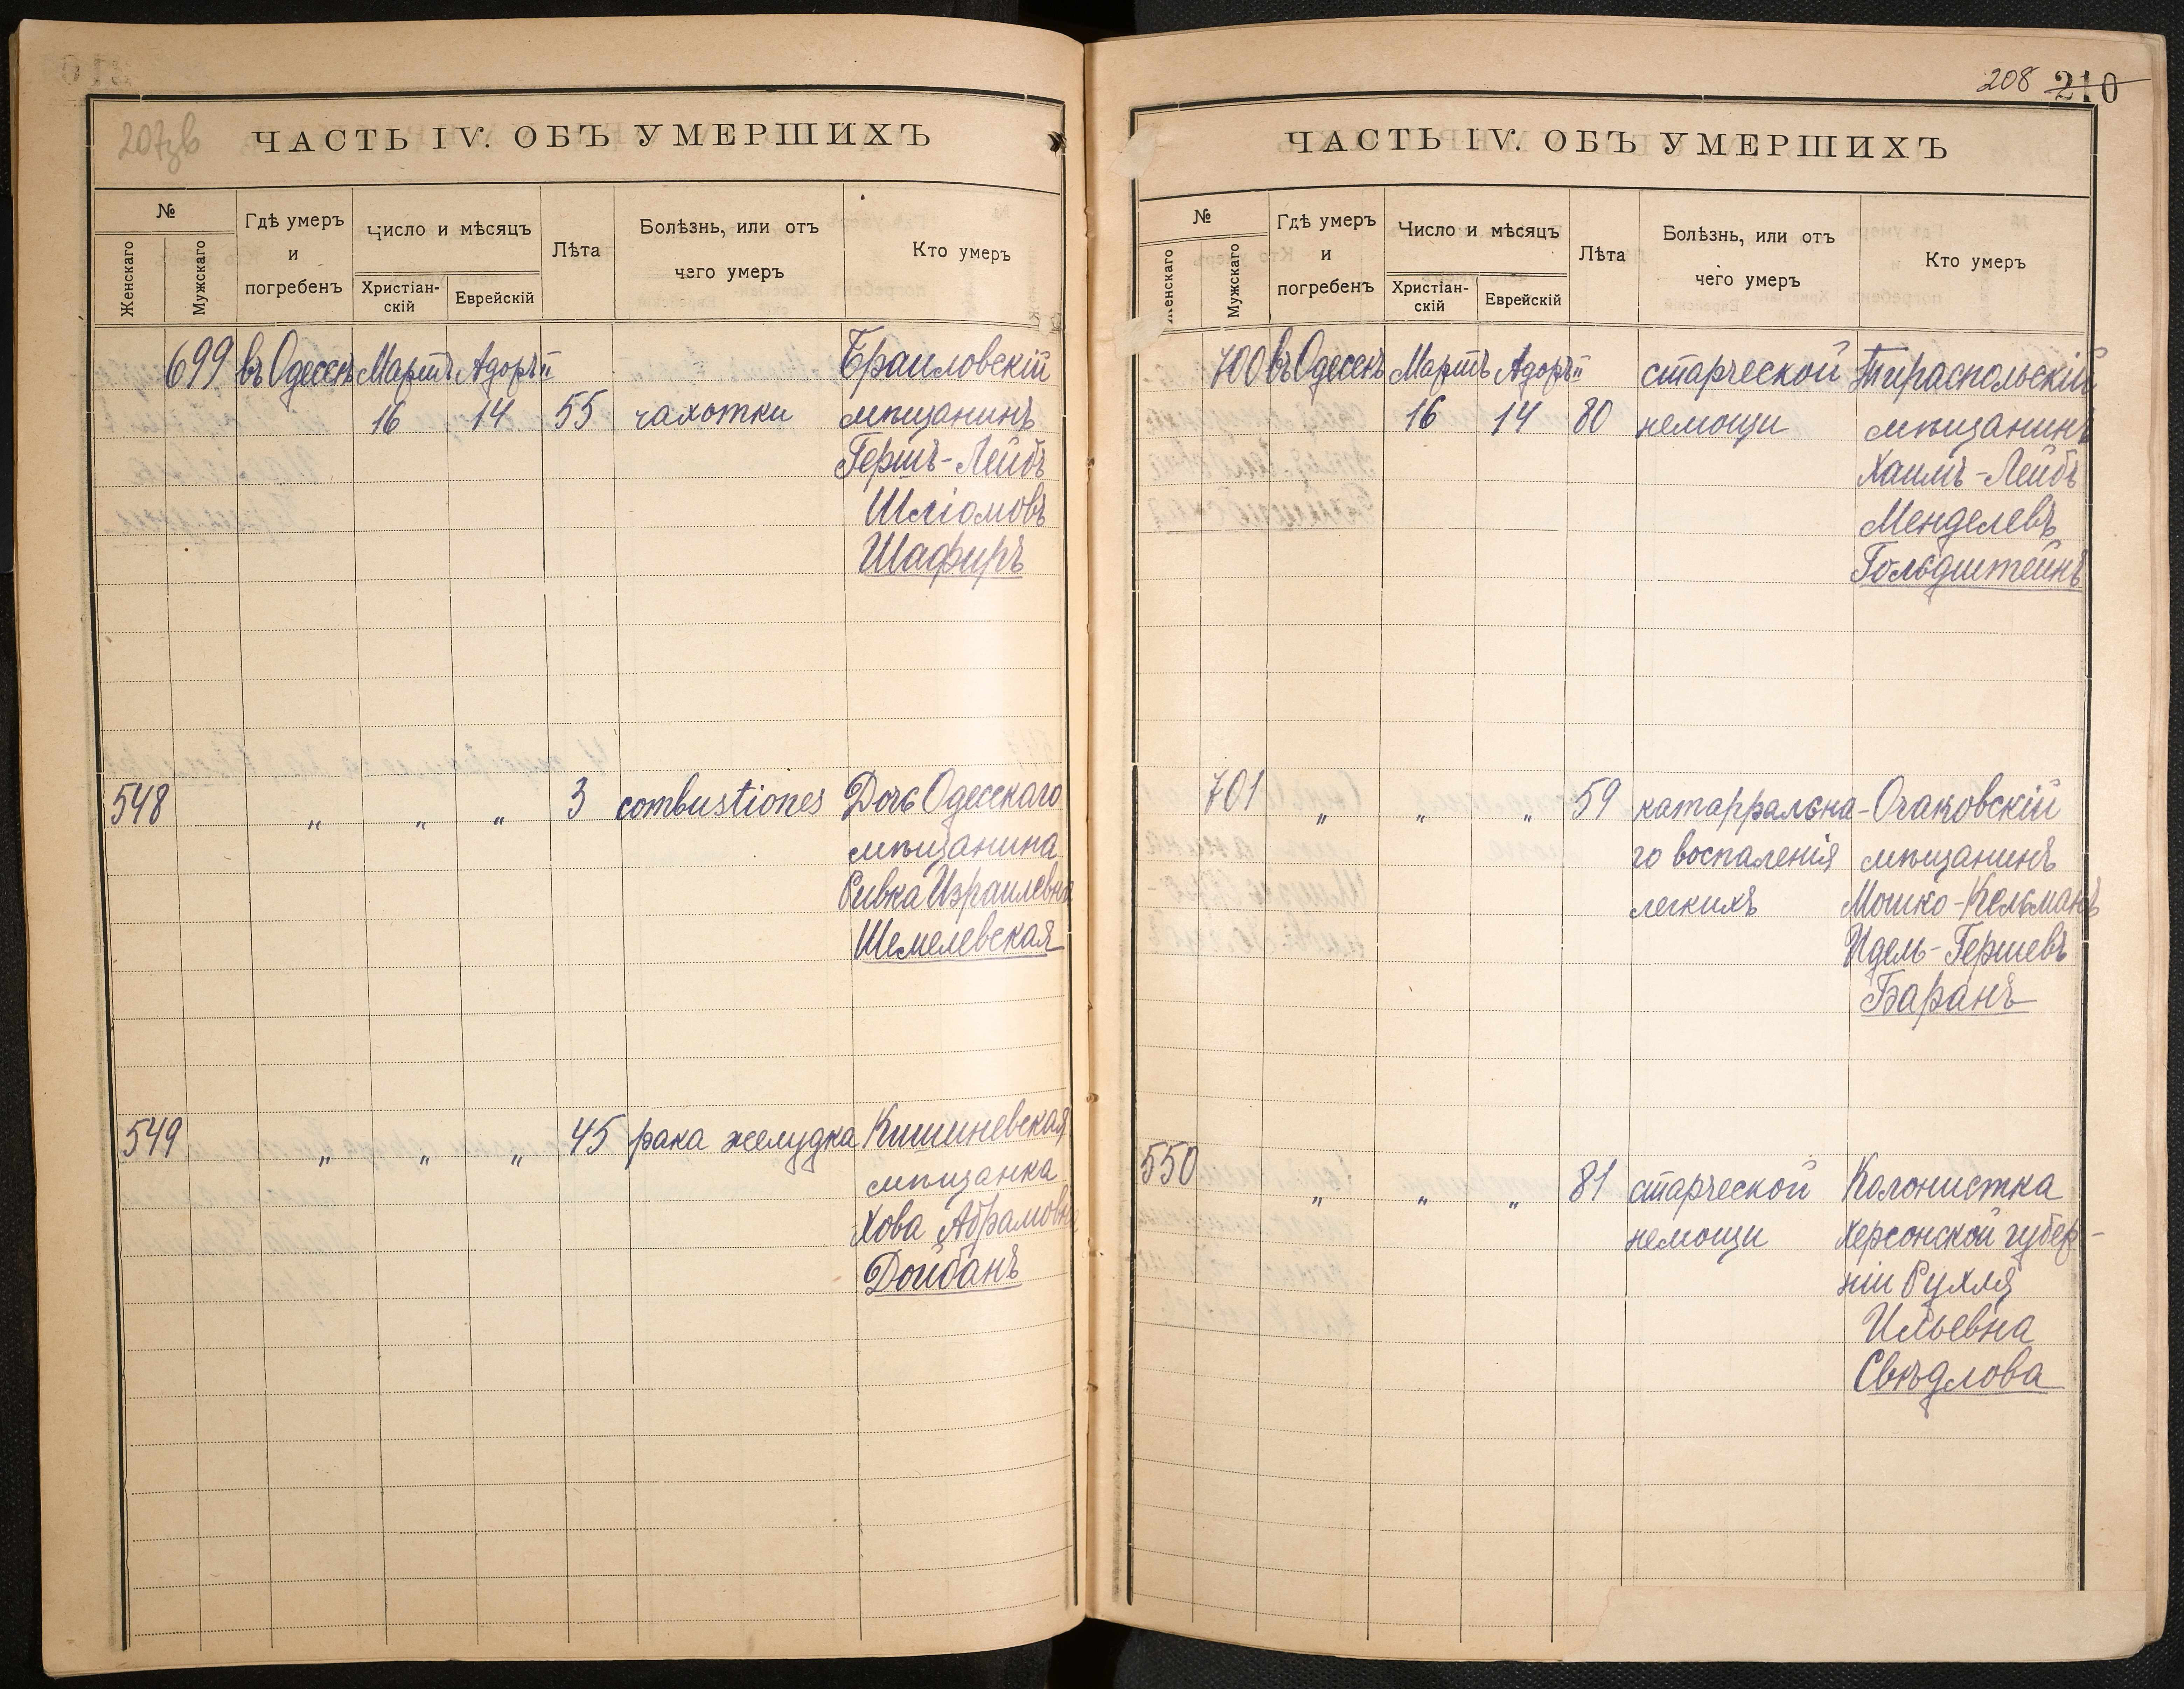 207зв
ЧАСТЬ IV. ОБЪ УМЕРШИХЪ
№
Женскаго
Мужскаго
Гдѣ умеръ
и
погребенъ
Число и мѣсяцъ
Христіан-
скій
Еврейскій
Лѣта
Болѣзнь, или отъ
чего умеръ
Кто умеръ
699 въ Одессѣ Мартъ Адоръ II Браиловскій
16 14 55 чахотки мѣщанинъ
Гершъ-Лейбъ
Шліомовъ
Шафиръ
548 „ „ „ 3 combustiones Дочь Одесскаго
мѣщанина
Ривка Израилевна
Шемелевская
549 „ „ „ 45 рака желудка Кишиневская
мѣщанка
Хова Абрамовна
Дойбанъ
208 210
ЧАСТЬ IV. ОБЪ УМЕРШИХЪ
№
Женскаго
Мужскаго
Гдѣ умеръ
и
погребенъ
Число и мѣсяцъ
Христіан-
скій
Еврейскій
Лѣта
Болѣзнь, или отъ
чего умеръ
Кто умеръ
700 въ Одессѣ Мартъ Адоръ II старческой Тираспольскій
16 14 80 немощи мѣщанинъ
Хаимъ-Лейбъ
Менделевъ
Гольдштейнъ
701 „ „ „ 59 катарральна- Очаковскій
го воспаленія мѣщанинъ
легкихъ Мошко-Кельманъ
Идель-Гершевъ
Баранъ
550 „ „ „ 81 старческой Колонистка
немощи Херсонской губер-
ніи Рухля
Ильевна
Свѣдлова